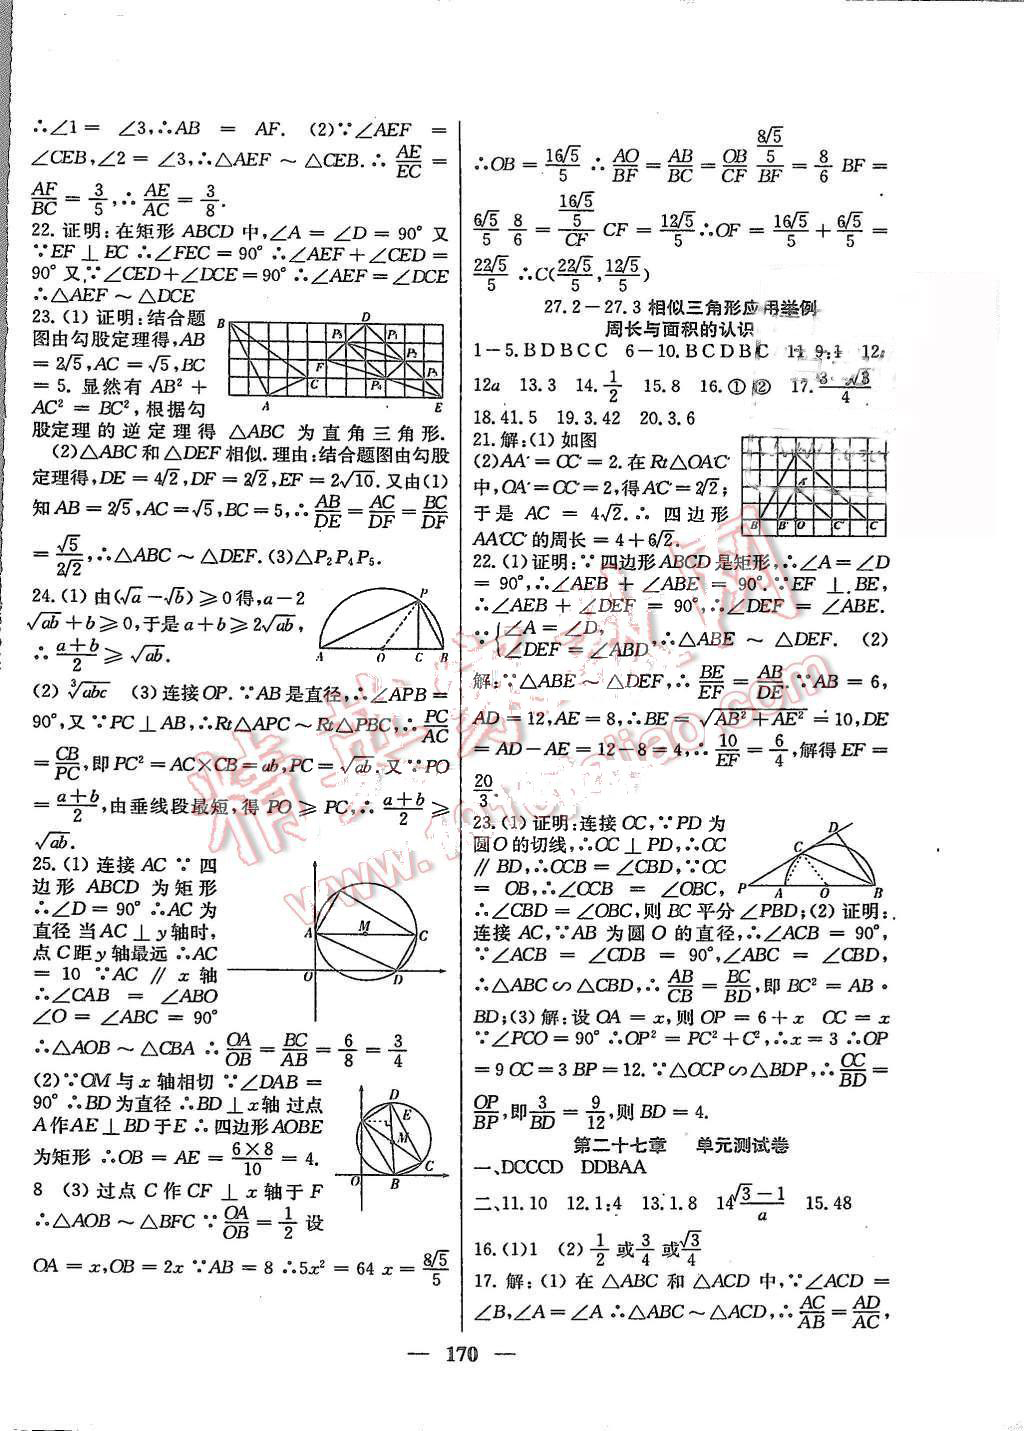 ∴∠1 = ∠3,∴AB = AF. (2)∵∠AEF =
∠CEB,∠2 = ∠3,∴△AEF ~ △CEB.∴ AE/EC =
AF/BC = 3/5,∴ AE/AC = 3/8.
22. 证明:在矩形 ABCD 中,∠A = ∠D = 90° 又
∵EF ⊥ EC ∴∠FEC = 90° ∴∠AEF+∠CED =
90° 又∵∠CED+∠DCE = 90° ∴∠AEF = ∠DCE
∴△AEF ~ △DCE
23. (1) 证明:结合题
图由勾股定理得,AB
= 2√5,AC = √5,BC
= 5. 显然有 AB² +
AC² = BC², 根据勾
股定理的逆定理得 △ABC 为直角三角形.
(2)△ABC 和 △DEF 相似. 理由:结合题图由勾股
定理得,DE = 4√2,DF = 2√2,EF = 2√10. 又由(1)
知 AB = 2√5,AC = √5,BC = 5,∴ AB/DE = AC/DF = BC/DF
= √5/2√2,∴△ABC ~ △DEF. (3)△P₂P₄P₅.
24. (1) 由(√a − √b) ⩾ 0 得, a − 2
√ab + b ⩾ 0, 于是 a + b ⩾ 2√ab,
∴ (a+b)/2 ⩾ √ab.
(2) ³√abc (3) 连接 OP. ∵AB 是直径,∴∠APB =
90°, 又 ∵PC ⊥ AB,∴Rt△APC ~ Rt△PBC,∴ PC/AC
= CB/PC, 即 PC² = AC×CB = ab, PC = √ab. 又∵PO
= (a+b)/2, 由垂线段最短, 得 PO ⩾ PC,∴ (a+b)/2 ⩾
√ab.
25. (1) 连接 AC ∵ 四
边形 ABCD 为矩形
∴∠D = 90° ∴AC 为
直径 当 AC ⊥ y 轴时,
点 C 距 y 轴最远 ∴AC
= 10 ∵AC ∥ x 轴
∴∠CAB = ∠ABO
∠O = ∠ABC = 90°
∴△AOB ~ △CBA ∴ OA/OB = BC/AB = 6/8 = 3/4
(2)∵OM 与 x 轴相切 ∵∠DAB =
90° ∴BD 为直径 ∴BD ⊥ x 轴 过点
A 作 AE ⊥ BD 于 E ∴ 四边形 AOBE
为矩形 ∴OB = AE = 6×8/10 = 4.
8 (3) 过点 C 作 CF ⊥ x 轴于 F
∴△AOB ~ △BFC ∵ OA/OB = 1/2 设
OA = x, OB = 2x ∵AB = 8 ∴5x² = 64 x = 8√5/5
∴OB = 16√5/5 ∴ AO/BF = AB/BC = OB/CF (8√5/5)/BF = 8/6 BF =
6√5/5 8/6 = (16√5/5)/CF CF = 12√5/5 ∴OF = 16√5/5 + 6√5/5 =
22√5/5 ∴C(22√5/5, 12√5/5)
27.2−27.3 相似三角形应用举例
周长与面积的认识
1−5. B D B C C 6−10. B C D B C 11. 9:1 12.
12a 13. 3 14. 1/2 15. 8 16. ① ② 17.
18. 41.5 19. 3.42 20. 3.6
21. 解:(1) 如图
(2)AA′ = CC′ = 2. 在 Rt△OA′C′
中,OA′ = OC′ = 2, 得 A′C′ = 2√2;
于是 AC = 4√2. ∴ 四边形
AA′C′C 的周长 = 4 + 6√2.
22. (1) 证明:∵ 四边形 ABCD 是矩形,∴∠A = ∠D
= 90°,∴∠AEB + ∠ABE = 90°. ∵EF ⊥ BE,
∴∠AEB + ∠DEF = 90°,∴∠DEF = ∠ABE.
∵ {∠A = ∠D, ∠DEF = ∠ABD, ∴△ABE ~ △DEF. (2)
解:∵△ABE ~ △DEF,∴ BE/EF = AB/DE. ∵AB = 6,
AD = 12, AE = 8,∴BE = √(AB² + AE²) = 10, DE
= AD − AE = 12 − 8 = 4,∴ 10/EF = 6/4, 解得 EF =
20/3.
23. (1) 证明:连接 OC,∵PD 为
圆 O 的切线,∴OC ⊥ PD,∴OC
∥ BD,∴∠OCB = ∠CBD,∵OC
= OB,∴∠OCB = ∠OBC,
∴∠CBD = ∠OBC, 则 BC 平分 ∠PBD; (2) 证明:
连接 AC,∵AB 为圆 O 的直径,∴∠ACB = 90°,
∵∠ACB = ∠CDB = 90°,∠ABC = ∠CBD,
∴△ABC∽△CBD,∴ AB/CB = BC/BD, 即 BC² = AB ·
BD; (3) 解:设 OA = x, 则 OP = 6 + x OC = x
∵∠PCO = 90° ∴OP² = PC² + C²,∴x = 3 ∴OP
= 9 OC = 3 BP = 12. ∵△OCP∽△BDP,∴ OC/BD =
OP/BP, 即 3/BD = 9/12, 则 BD = 4.
第二十七章 单元测试卷
一、DCCCD DDBAA
二、11. 10 12. 1:4 13. 1.8 14 (√3−1)/a 15. 48
16. (1)1 (2) 1/2 或 3/4 或 √3/4
17. 解:(1) 在 △ABC 和 △ACD 中,∵∠ACD =
∠B,∠A = ∠A ∴△ABC ~ △ACD,∴ AC/AB = AD/AC,
— 170 —